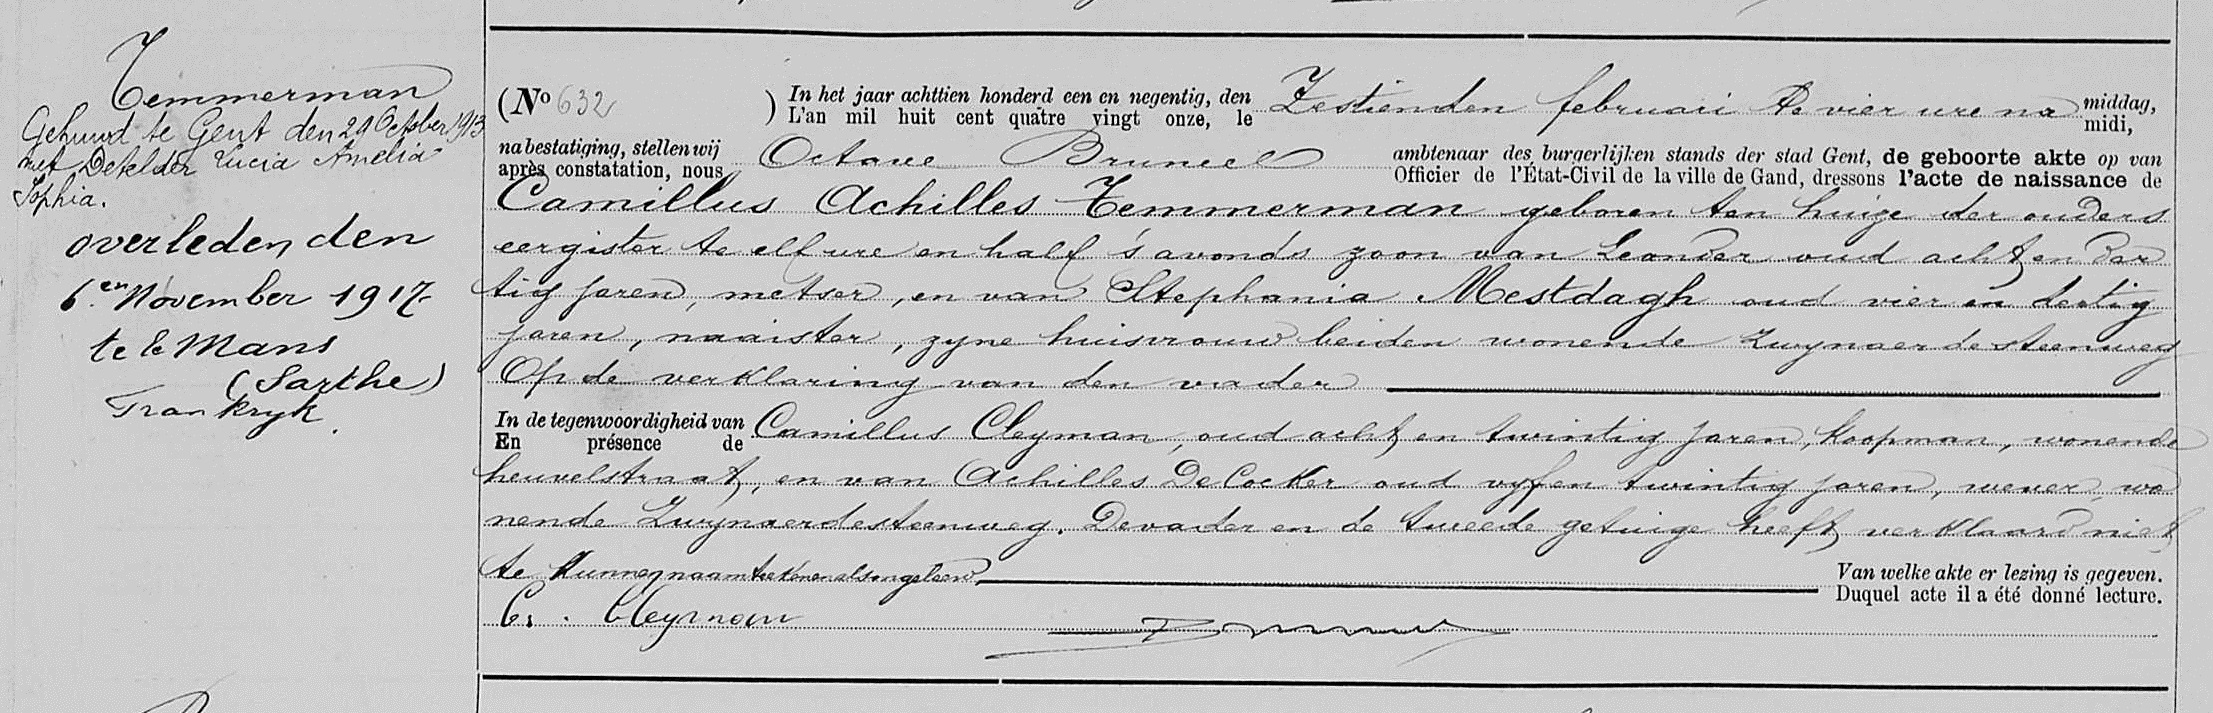 Temmerman
Gehuwd te Gent den 29 October 1913
met Dekelder Lucia Amelia
Sophia.
overleden den
6.en November 1917
te le Mans
(Sarthe)
Frankryk.
(No 632 ) In het jaar achttien honderd een en negentig, den Zestienden februari te vier ure na middag,
L'an mil huit cent quatre vingt onze, le midi,
na bestatiging, stellen wij Octave Bruneel ambtenaar des burgerlijken stands der stad Gent, de geboorte akte op van
après constatation, nous Officier de l'État-Civil de la ville de Gand, dressons l'acte de naissance de
Camillus Achilles Temmerman geboren ten huize der ouders
eergister te elf ure en half 's avonds zoon van Leander oud acht en der
tig jaren, metser, en van Stephania Mestdagh oud vier en dertig
jaren, naaister, zyne huisvrouw beiden wonende Zwynaerdesteenweg
Op de verklaring van den vader
In de tegenwoordigheid van Camillus Cleyman, oud acht en twintig jaren, koopman, wonende
En présence de
heuvelstraat, en van Achilles De Cocker oud vyf en twintig jaren, wever, wo
nende Zwynaerdesteenweg. De vader en de tweede getuige heeft verklaard niet
te kunnen naamteekenen als ongeleerd. Van welke akte er lezing is gegeven.
Duquel acte il a été donné lecture.
C. Cleyman